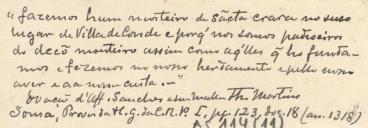 "fazemos hum moesteiro de sãcta crara no suso
lugar de Villa de Conde e porq̃ nos somos padroeiros
do dcõ moesteiro assim como aq̃lles q̃ ho funda-
mos e fezemos no nosso herdamento e pello nosso
aver e aa nossa custa .."
Doação d'Aff. Sanches e sua mulher Thr. Martins
Sousa, Provas da H. G. da C. R. P. I, pg. 123, doc. 18 (an. 1318)
A5 114 (11)